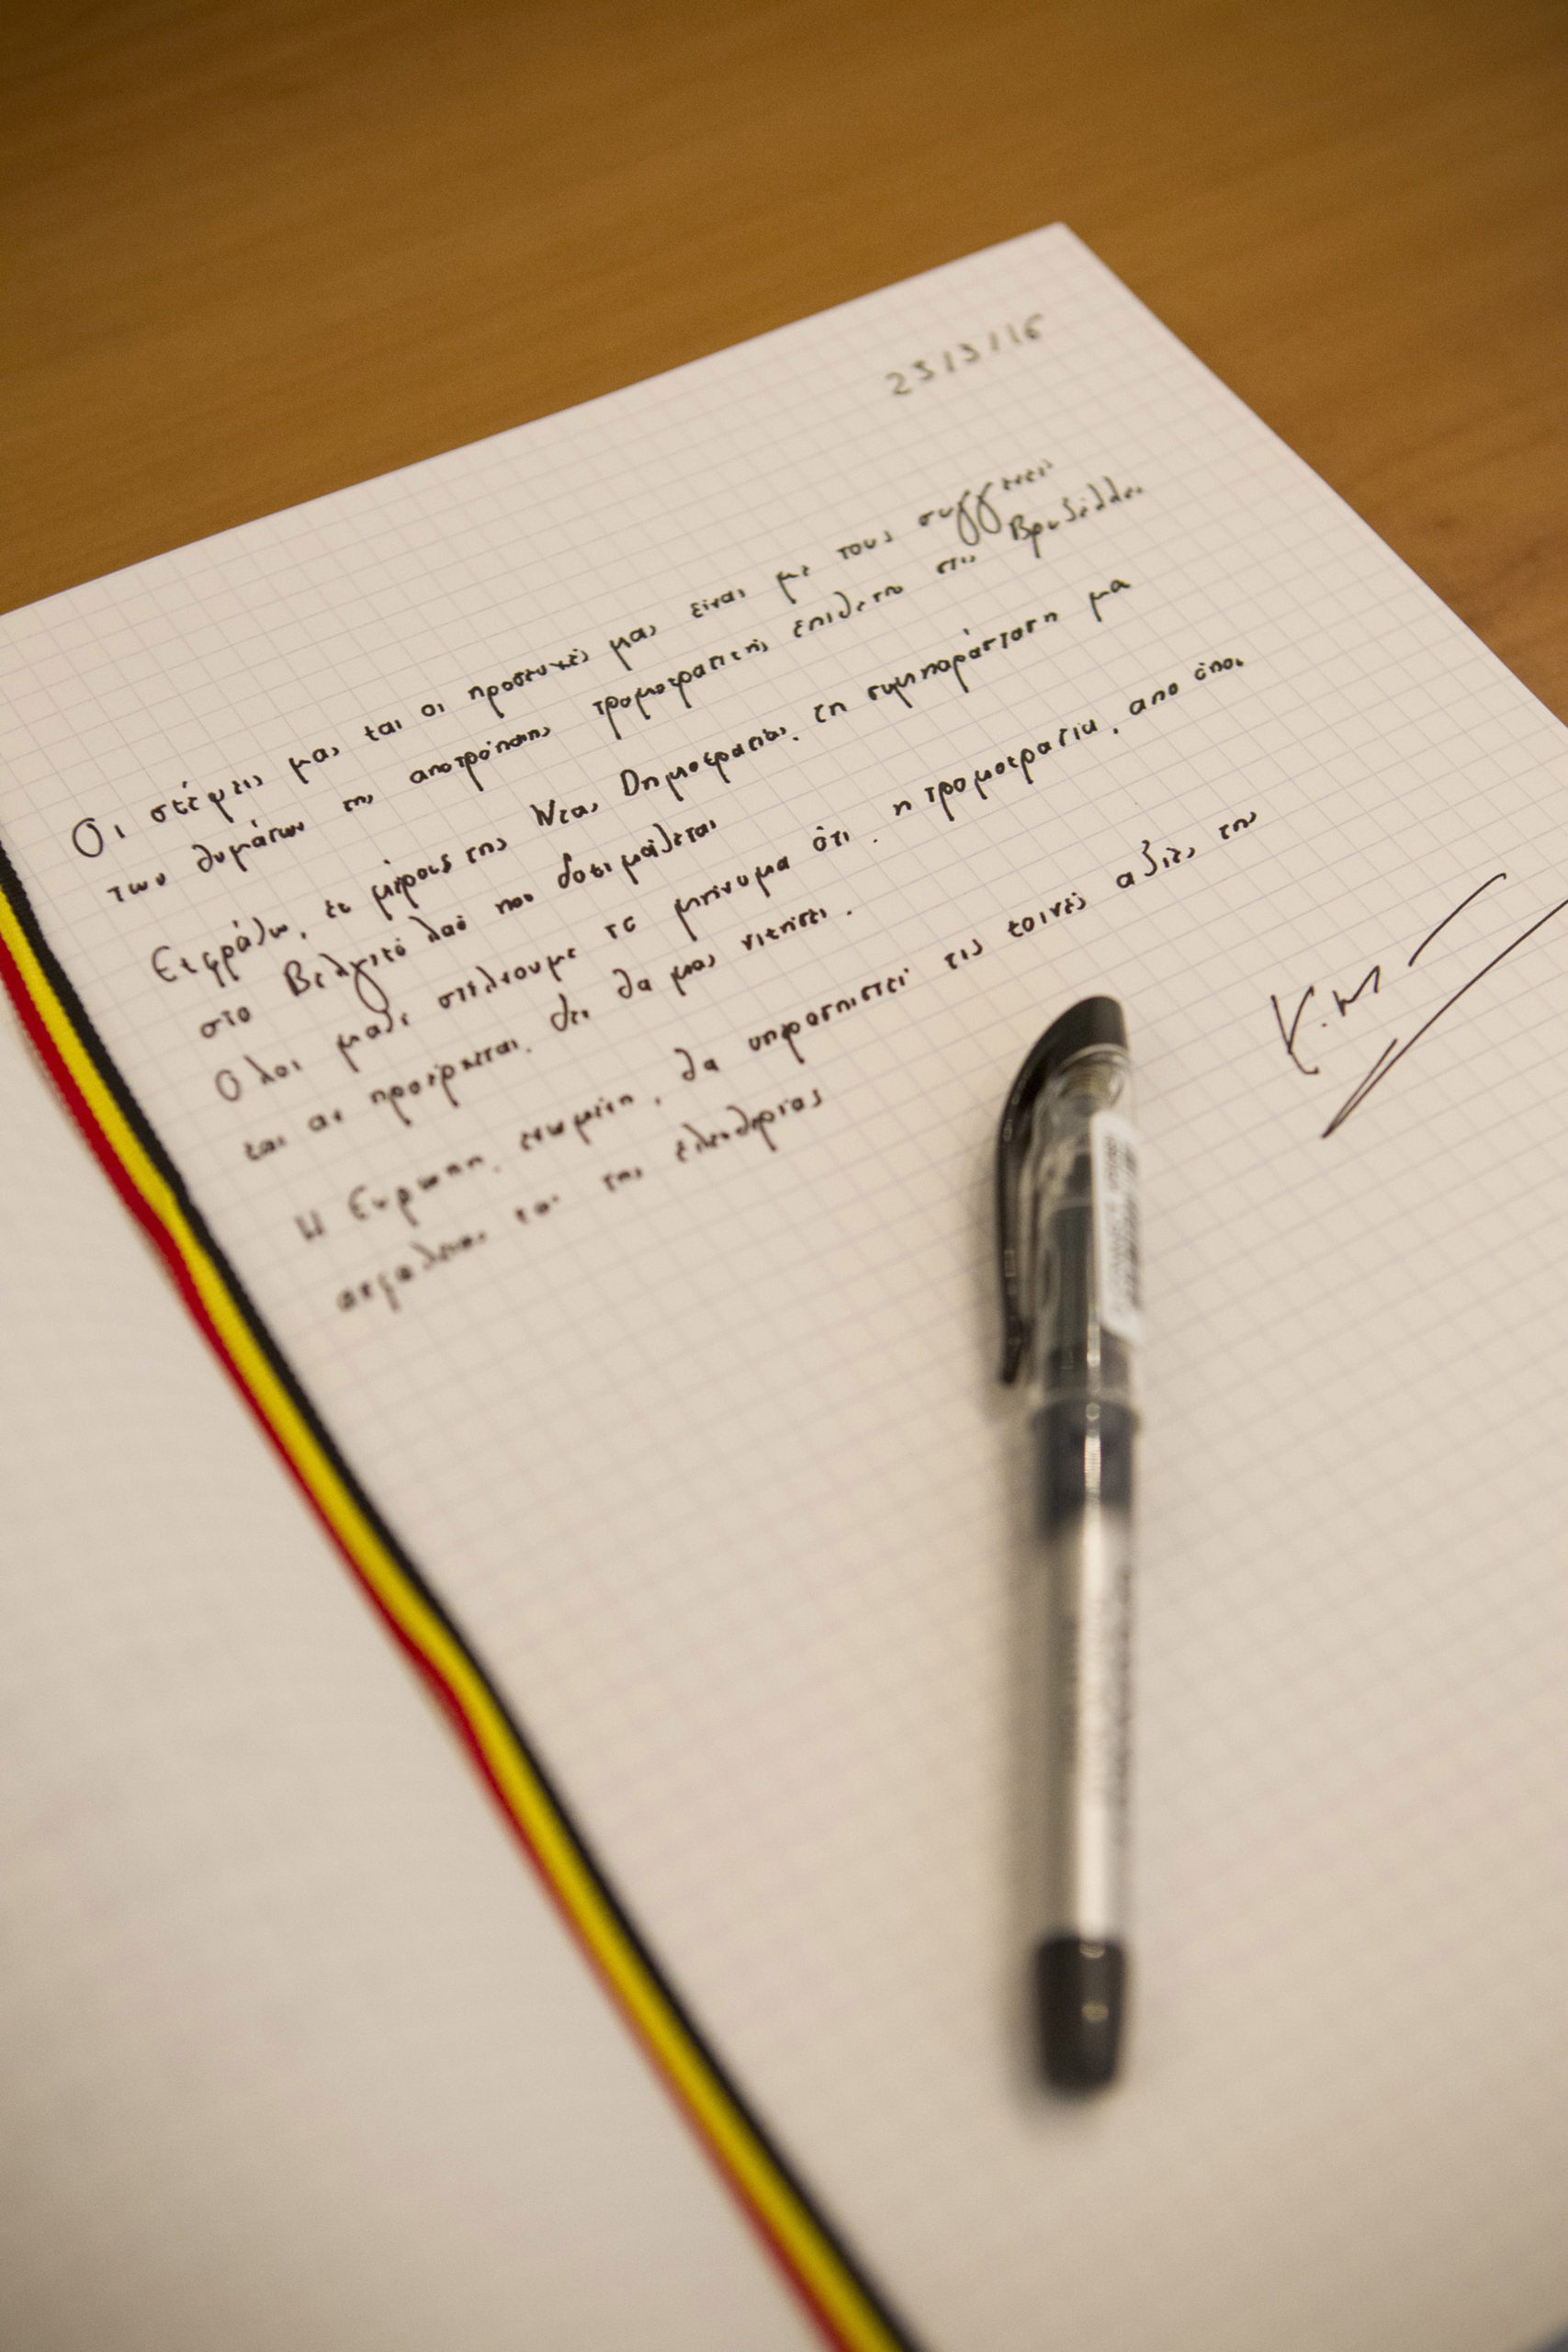 23/3/16
Οι σκέψεις μας και οι προσευχές μας είναι με τους συγγενείς
των θυμάτων της αποτρόπαιης τρομοκρατικής επίθεσης στις Βρυξέλλες
Εκφράζω, εκ μέρους της Νέας Δημοκρατίας, τη συμπαράσταση μας
στο Βελγικό λαό που δοκιμάζεται
Όλοι μαζί στέλνουμε το μήνυμα ότι η τρομοκρατία, από όπου
και αν προέρχεται, δεν θα μας νικήσει.
Η Ευρώπη, ενωμένη, θα υπερασπιστεί τις κοινές αξίες της
ασφάλειας και της ελευθερίας
Κ.Μ